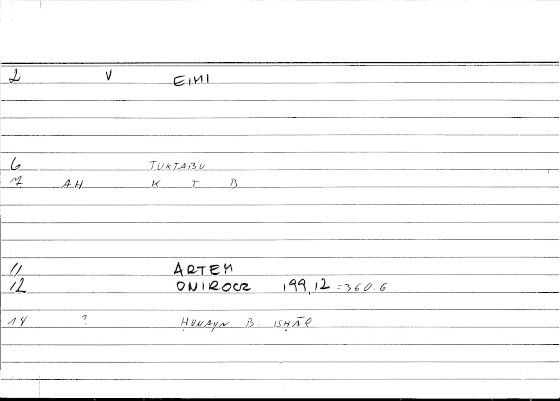 2 V EIMI
6 TUKTABU
7 AH K T B
11 ARTEM
12 ONIROCR 199,12 =360.6
14 ? ḤUNAYN B. ISḤĀQ